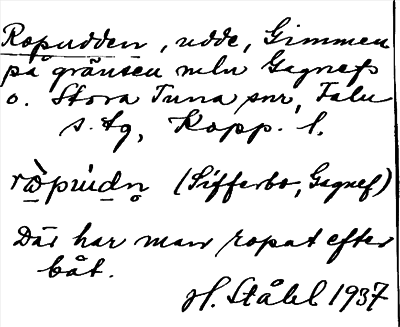 Ropudden, udde, Gimmen
på gränsen mln Gagnefs
o. Stora Tuna snr, Falu
s. tg, Kopp. l.
ræ̀pu̇dn̥ (Sifferbo, Gagnef)
Där har man ropat efter
båt.
H. Ståhl 1937